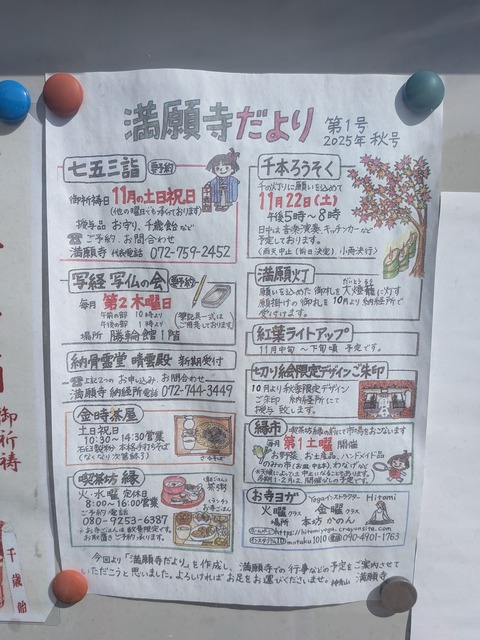 満願寺だより
第1号
2025年 秋号
七五三詣 要予約
御祈祷日 11月の土日祝日
(他の曜日でも承っております)
授与品 お守り、千歳飴など
☎ご予約・お問合わせ
満願寺 代表電話 072-759-2452
写経 写仏の会 要予約
毎月 第2木曜日
午前の部 10時より
午後の部 1時より
場所 勝輪館1階
筆記具一式は
ご用意しております
納骨霊堂 晴雲殿 新規受付
☎上記2つのお申し込み、お問合わせ
満願寺 納経所電話 072-744-3449
金時茶屋
土日祝日
10:30~14:30営業
石臼製粉 本格手打ちそば
(なくなり次第終了)
ざるそば
喫茶坊 縁
火・水曜 定休日
8:00~16:00営業
ご予約電話
080-9253-6387
*お寺ごはんは数量限定です。
お取置きご予約承ります。
ランチ
お寺ごはん
千本ろうそく
千の灯りに願いを込めて
11月22日(土)
午後5時~8時
日中は音楽演奏、キッチンカーなど
予定しております。
(雨天中止(前日決定) 小雨決行)
満願灯
願いを込めた御札を大燈籠に灯す
願掛けの御札を10月より納経所で
受付けます。
紅葉ライトアップ
11月中旬~下旬頃 予定です。
切り絵限定デザインご朱印
10月より秋季限定デザイン
ご朱印 納経所にて
授与致します。
縁市 喫茶坊縁の前にて市場をおこないます
毎月 第1土曜 開催
お野菜、お土産品、ハンドメイド品
のみの市(お皿、中古本)、わなげなど
1・2月は、開催なしの予定です。
お寺ヨガ Yogaインストラクター Hitomi
火曜クラス 金曜クラス
場所 本坊 かのん
ホームページ https://hitomiyoga.crayonsite.com
インスタグラムID motoku1010 電話 090-4901-1763
今回より「満願寺だより」を作成し、満願寺での行事などの予定をご案内させて
いただこうと思いました。よろしければお足をお運びくださいませ。 神秀山 満願寺
御祈祷
千歳飴